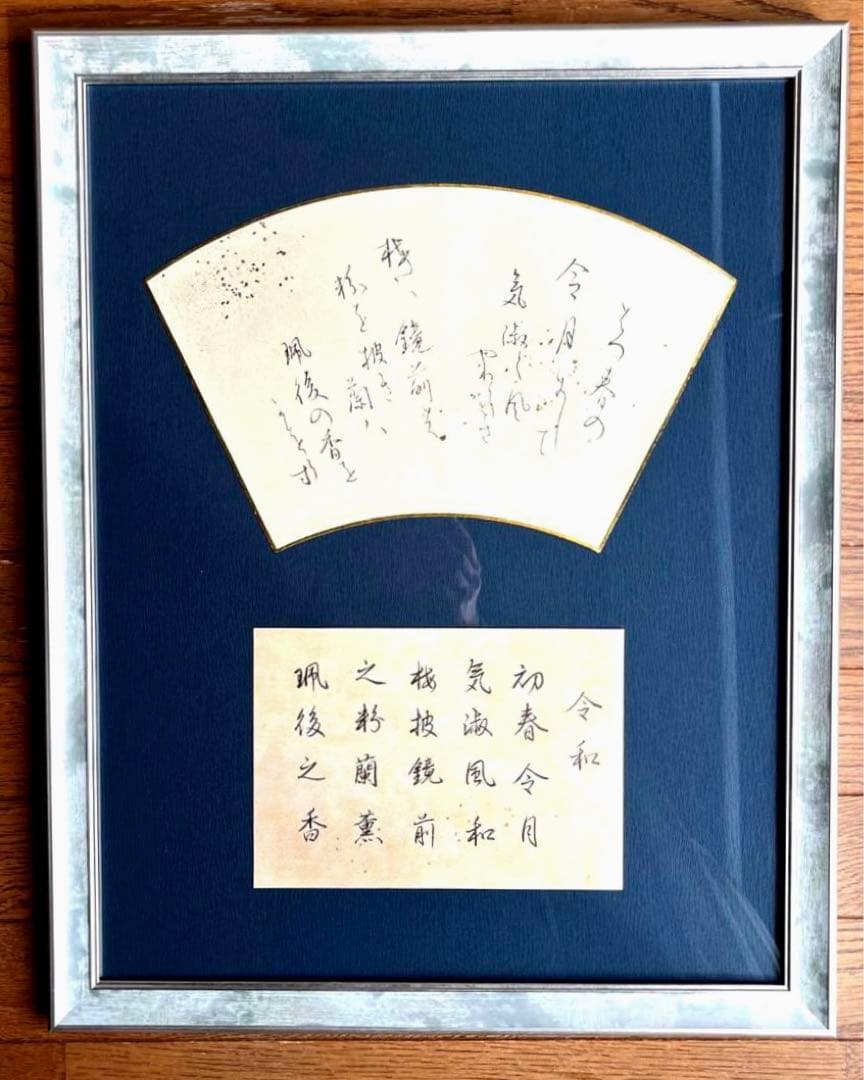 春の
令月にして
気淑く風
梅ハ鏡前の
粉を披き蘭ハ
珮後の香を
令和
初春令月
気淑風和
梅披鏡前
之粉蘭薫
珮後之香